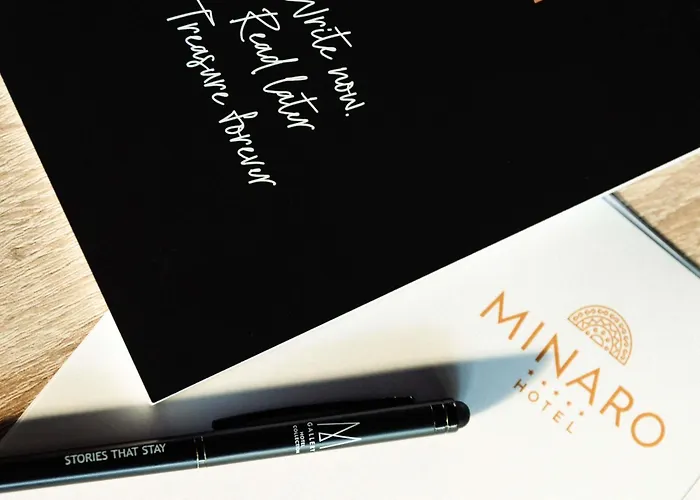 Write now.
Read later
Treasure forever
MINARO
HOTEL
STORIES THAT STAY
M
GALLERY
HOTEL
COLLECTION